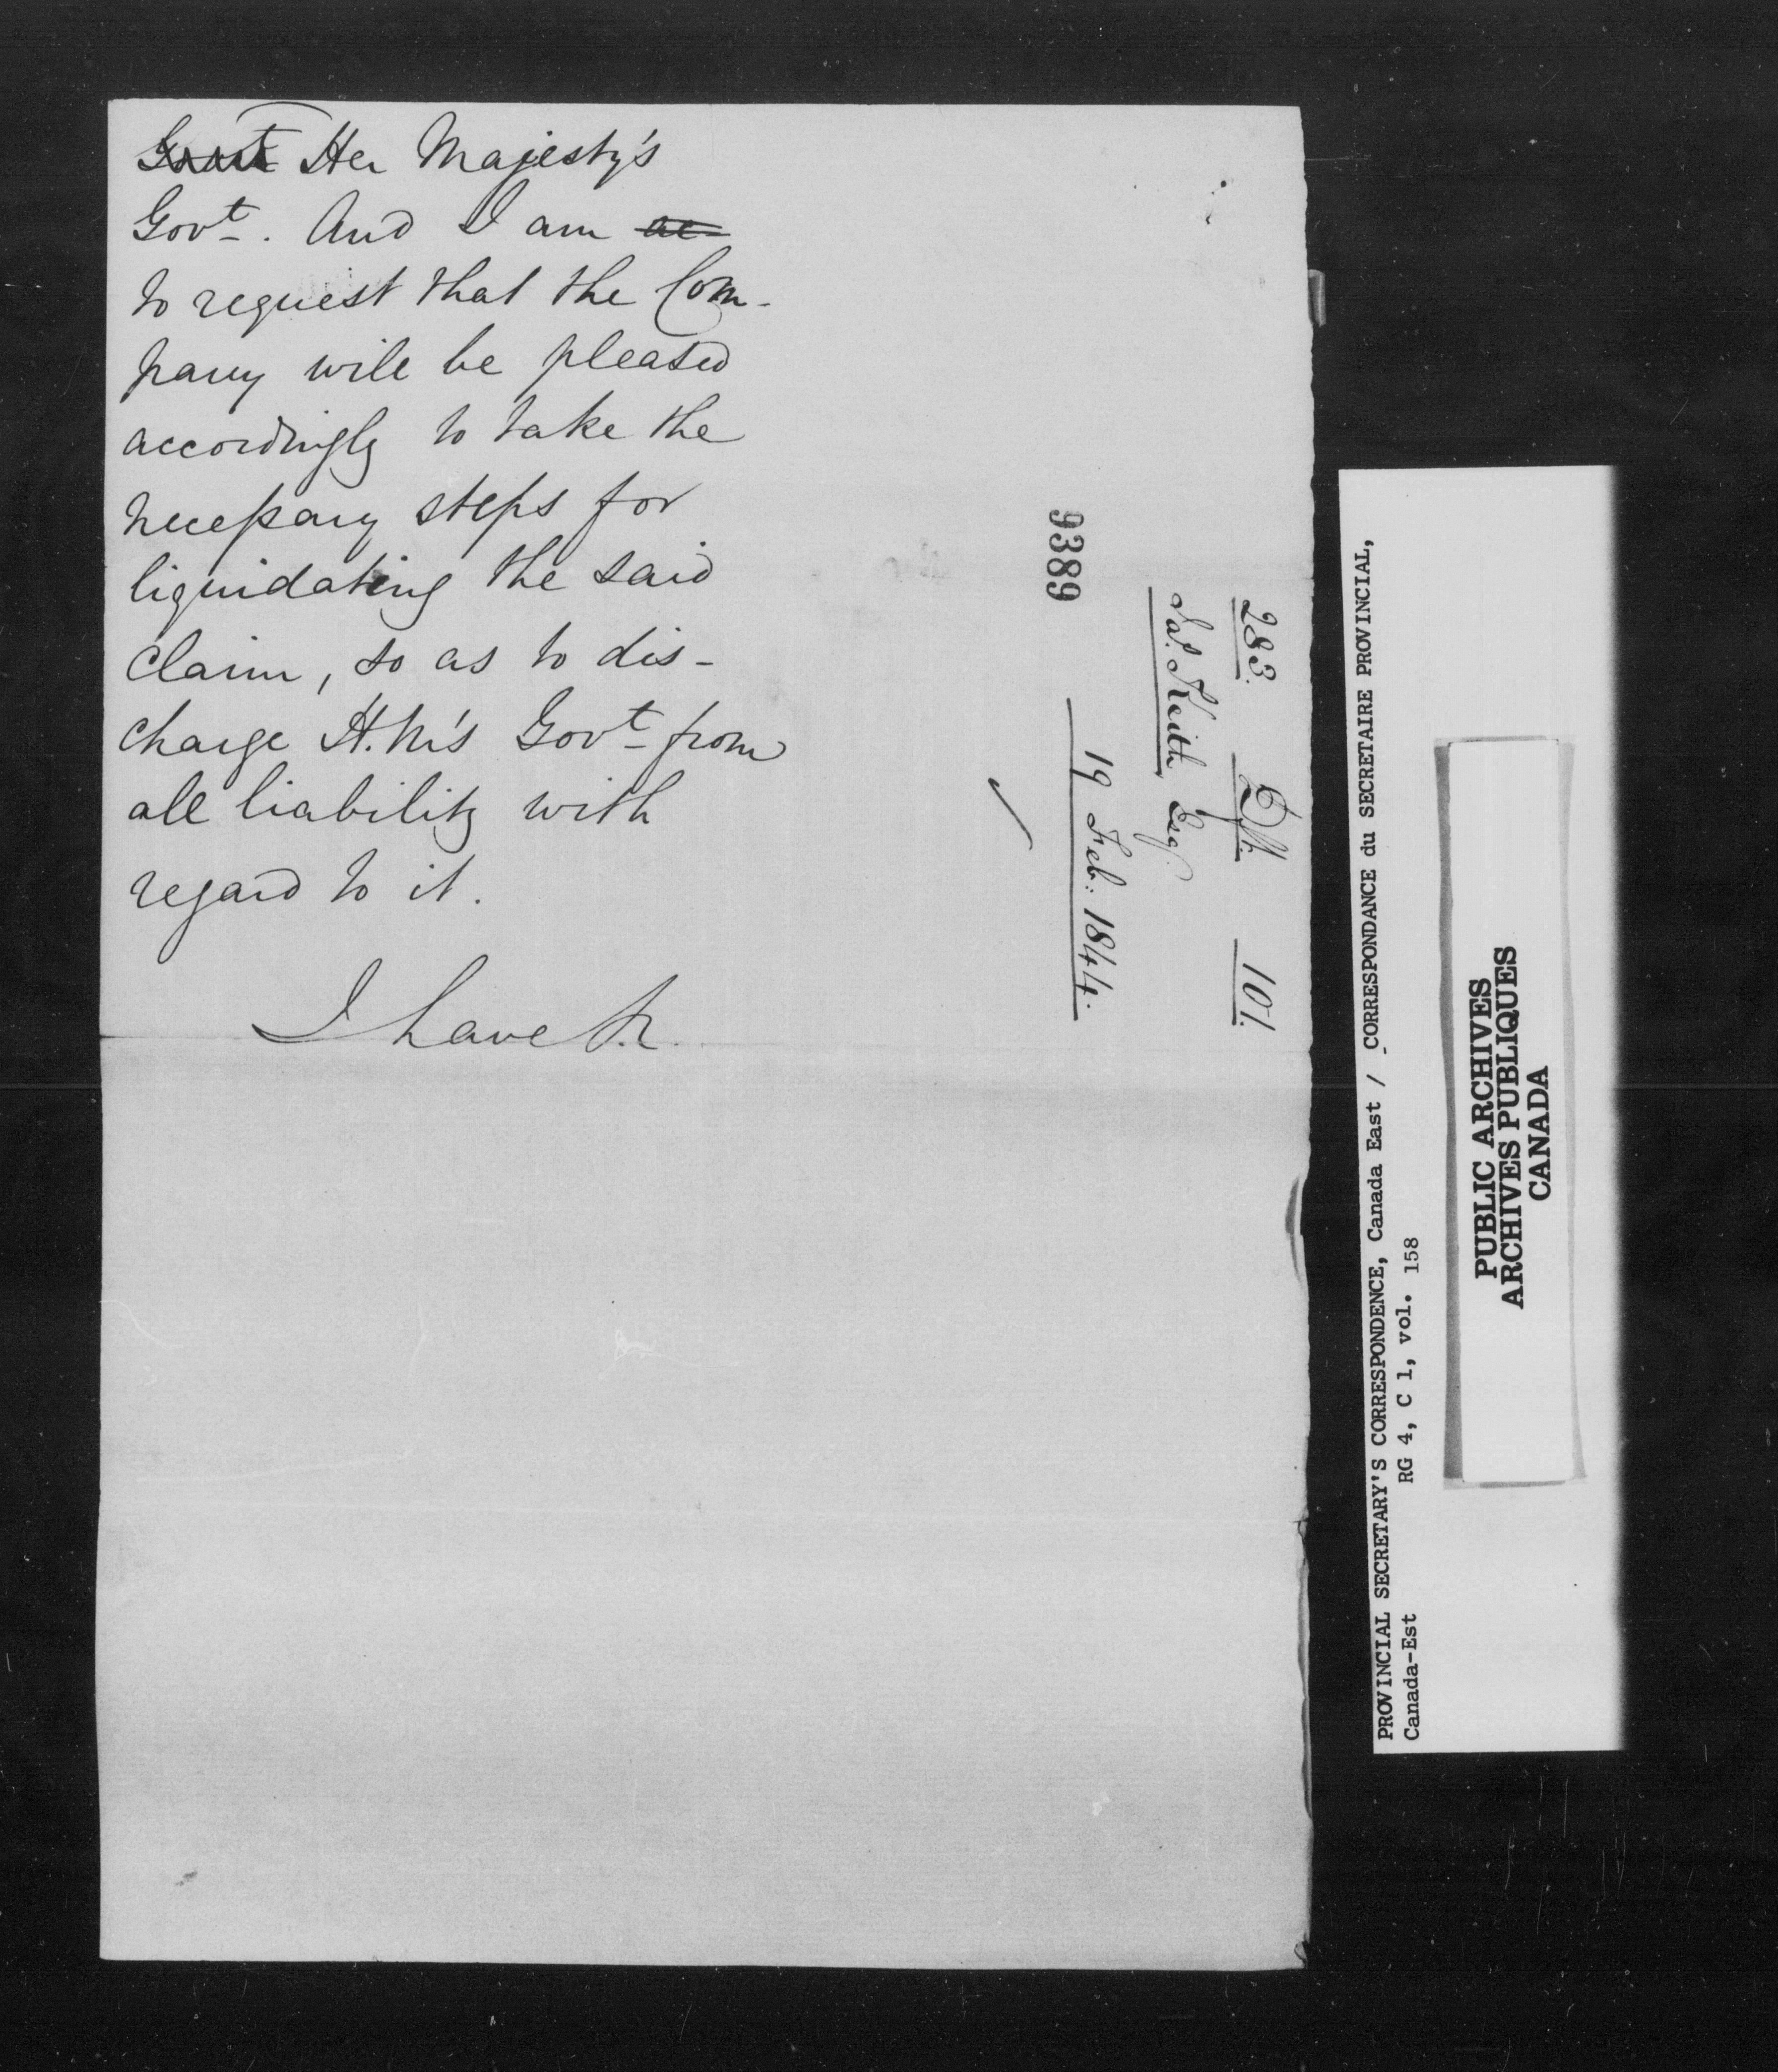 Govt Her Majesty's
Govt. And I am ac-
to request that the Com-
pany will be pleased
accordingly to take the
necessary steps for
liquidating the said
claim, so as to dis-
charge H.M's Govt from
all liability with
regard to it.
I have &c.
283. Dft. 101.
Jas. Keith Esq.
19 Feb: 1844.
9389
PROVINCIAL SECRETARY'S CORRESPONDENCE, Canada East / CORRESPONDANCE du SECRETAIRE PROVINCIAL,
Canada-Est RG 4, C 1, vol. 158
PUBLIC ARCHIVES
ARCHIVES PUBLIQUES
CANADA